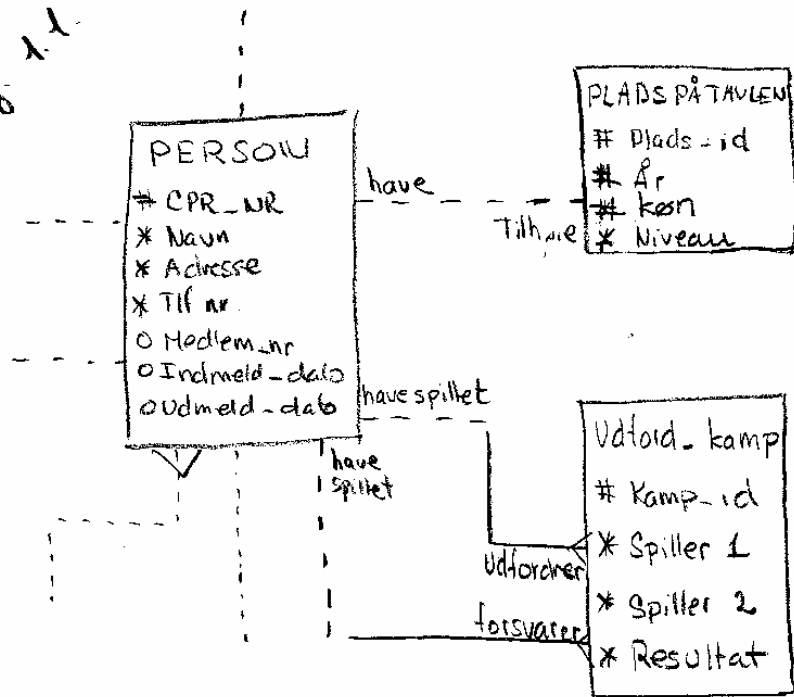 1.1.
PERSON
# CPR_NR
* Navn
* Adresse
* Tlf nr.
O Medlem_nr
O Indmeld_dato
O Udmeld_dato
have
Tilhøre
PLADS PÅ TAVLEN
# Plads_id
# År
# køn
* Niveau
have spillet
have
spillet
Udfordrer
forsvarer
Udford_kamp
# Kamp_id
* Spiller 1
* Spiller 2
* Resultat